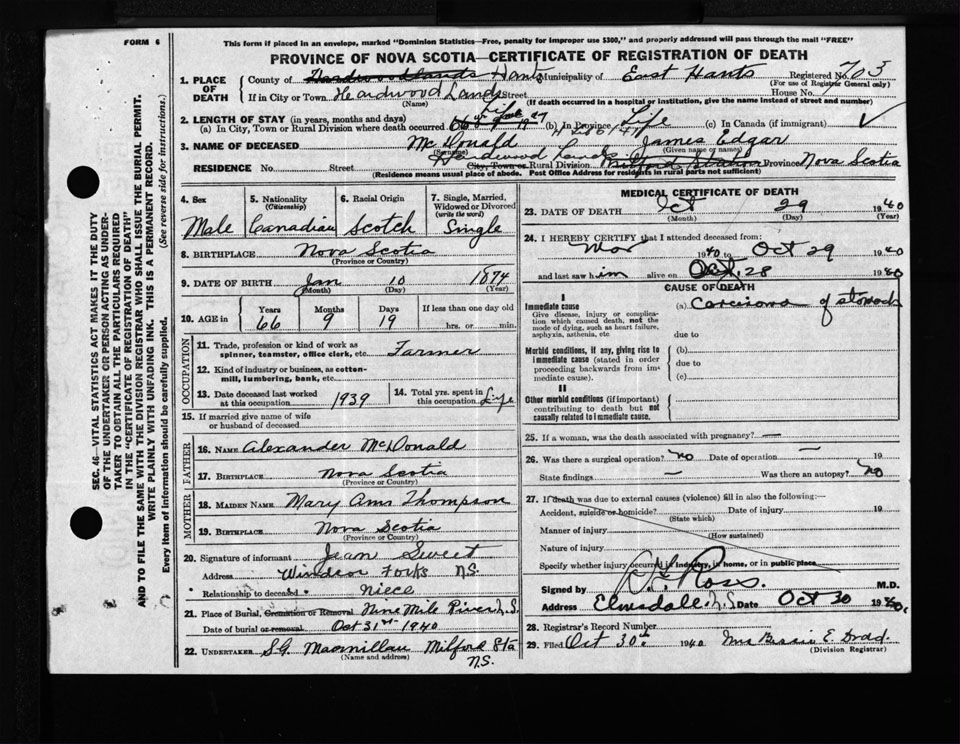 FORM 6
This form if placed in an envelope, marked "Dominion Statistics—Free, penalty for improper use $300," and properly addressed will pass through the mail "FREE"
PROVINCE OF NOVA SCOTIA—CERTIFICATE OF REGISTRATION OF DEATH
1. PLACE OF DEATH
County of Hardwoodlands Hants Municipality of East Hants Registered No. 703
(For use of Registrar General only)
If in City or Town Hardwood Lands Street House No.
(Name) (If death occurred in a hospital or institution, give the name instead of street and number)
2. LENGTH OF STAY (in years, months and days)
(a) In City, Town or Rural Division where death occurred Life (b) In Province Life (c) In Canada (if immigrant)
3. NAME OF DECEASED McDonald James Edgar
(Surname) (Given name or names)
RESIDENCE No. Street Hardwood Lands City, Town or Rural Division Milford Station Province Nova Scotia
(Residence means usual place of abode. Post Office Address for residents in rural parts not sufficient)
4. Sex
Male
5. Nationality
(Citizenship)
Canadian
6. Racial Origin
Scotch
7. Single, Married, Widowed or Divorced
(write the word)
Single
8. BIRTHPLACE Nova Scotia
(Province or Country)
9. DATE OF BIRTH Jan 10 1874
(Month) (Day) (Year)
10. AGE in
Years Months Days If less than one day old
66 9 19 hrs. or min.
OCCUPATION
11. Trade, profession or kind of work as spinner, teamster, office clerk, etc. Farmer
12. Kind of industry or business, as cotton-mill, lumbering, bank, etc.
13. Date deceased last worked at this occupation 1939
14. Total yrs. spent in this occupation Life
15. If married give name of wife or husband of deceased
FATHER
16. NAME Alexander McDonald
17. BIRTHPLACE Nova Scotia
(Province or Country)
MOTHER
18. MAIDEN NAME Mary Ann Thompson
19. BIRTHPLACE Nova Scotia
(Province or Country)
20. Signature of informant Jean Sweet
Address Windsor Forks N.S.
Relationship to deceased Niece
21. Place of Burial, Cremation or Removal Nine Mile River N.S.
Date of burial or removal Oct 31st 1940
22. UNDERTAKER S.G. Macmillan Milford Sta
(Name and address) N.S.
MEDICAL CERTIFICATE OF DEATH
23. DATE OF DEATH Oct 29 1940
(Month) (Day) (Year)
24. I HEREBY CERTIFY that I attended deceased from:
1940 to Oct 29 1940
and last saw him alive on Oct. 28 1940
CAUSE OF DEATH
I
Immediate cause (a) Carcinoma of stomach
Give disease, injury or complication which caused death, not the mode of dying, such as heart failure, asphyxia, asthenia, etc
due to
Morbid conditions, if any, giving rise to immediate cause (stated in order proceeding backwards from immediate cause).
(b)
due to
(c)
II
Other morbid conditions (if important) contributing to death but not causally related to immediate cause.
25. If a woman, was the death associated with pregnancy? —
26. Was there a surgical operation? no Date of operation — 19
State findings — Was there an autopsy? no
27. If death was due to external causes (violence) fill in also the following:—
Accident, suicide or homicide? Date of injury 19
(State which)
Manner of injury
(How sustained)
Nature of injury
Specify whether injury occurred in industry, in home, or in public place
Signed by Ross. M.D.
Address Elmsdale, N.S Date Oct 30 1940
28. Registrar's Record Number
29. Filed Oct 30th 1940 Mrs Bessie E. Dodd.
(Division Registrar)
SEC. 46—VITAL STATISTICS ACT MAKES IT THE DUTY
OF THE UNDERTAKER OR PERSON ACTING AS UNDERTAKER
TO OBTAIN ALL THE PARTICULARS REQUIRED
IN THE "CERTIFICATE OF REGISTRATION OF DEATH"
AND TO FILE THE SAME WITH THE DIVISION REGISTRAR WHO SHALL ISSUE THE BURIAL PERMIT.
WRITE PLAINLY WITH UNFADING INK. THIS IS A PERMANENT RECORD.
Every item of information should be carefully supplied. (See reverse side for instructions).